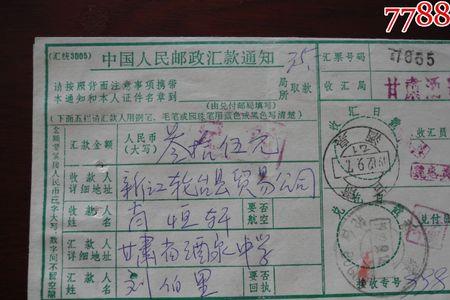 7788
(汇统3005)
中国人民邮政汇款通知
35-
汇票号码
7855
请按照背面注意事项携带
本通知和本人证件名章到
局
所
取款
(由兑付邮局填写)
收汇局
甘肃酒
(下面五栏请汇款人用钢笔、毛笔或圆珠笔用蓝色或黑色写清楚)
汇款金额
人民币
(大写)
叁拾伍元
收汇日戳
收汇员
收款人
详细地址
新江轮台县贸易公司
收款人
姓名
肖恒轩
要否
航空
汇款人
详细地址
甘肃省酒泉中学
汇款人
姓名
刘伯里
要否
回执
接收专号